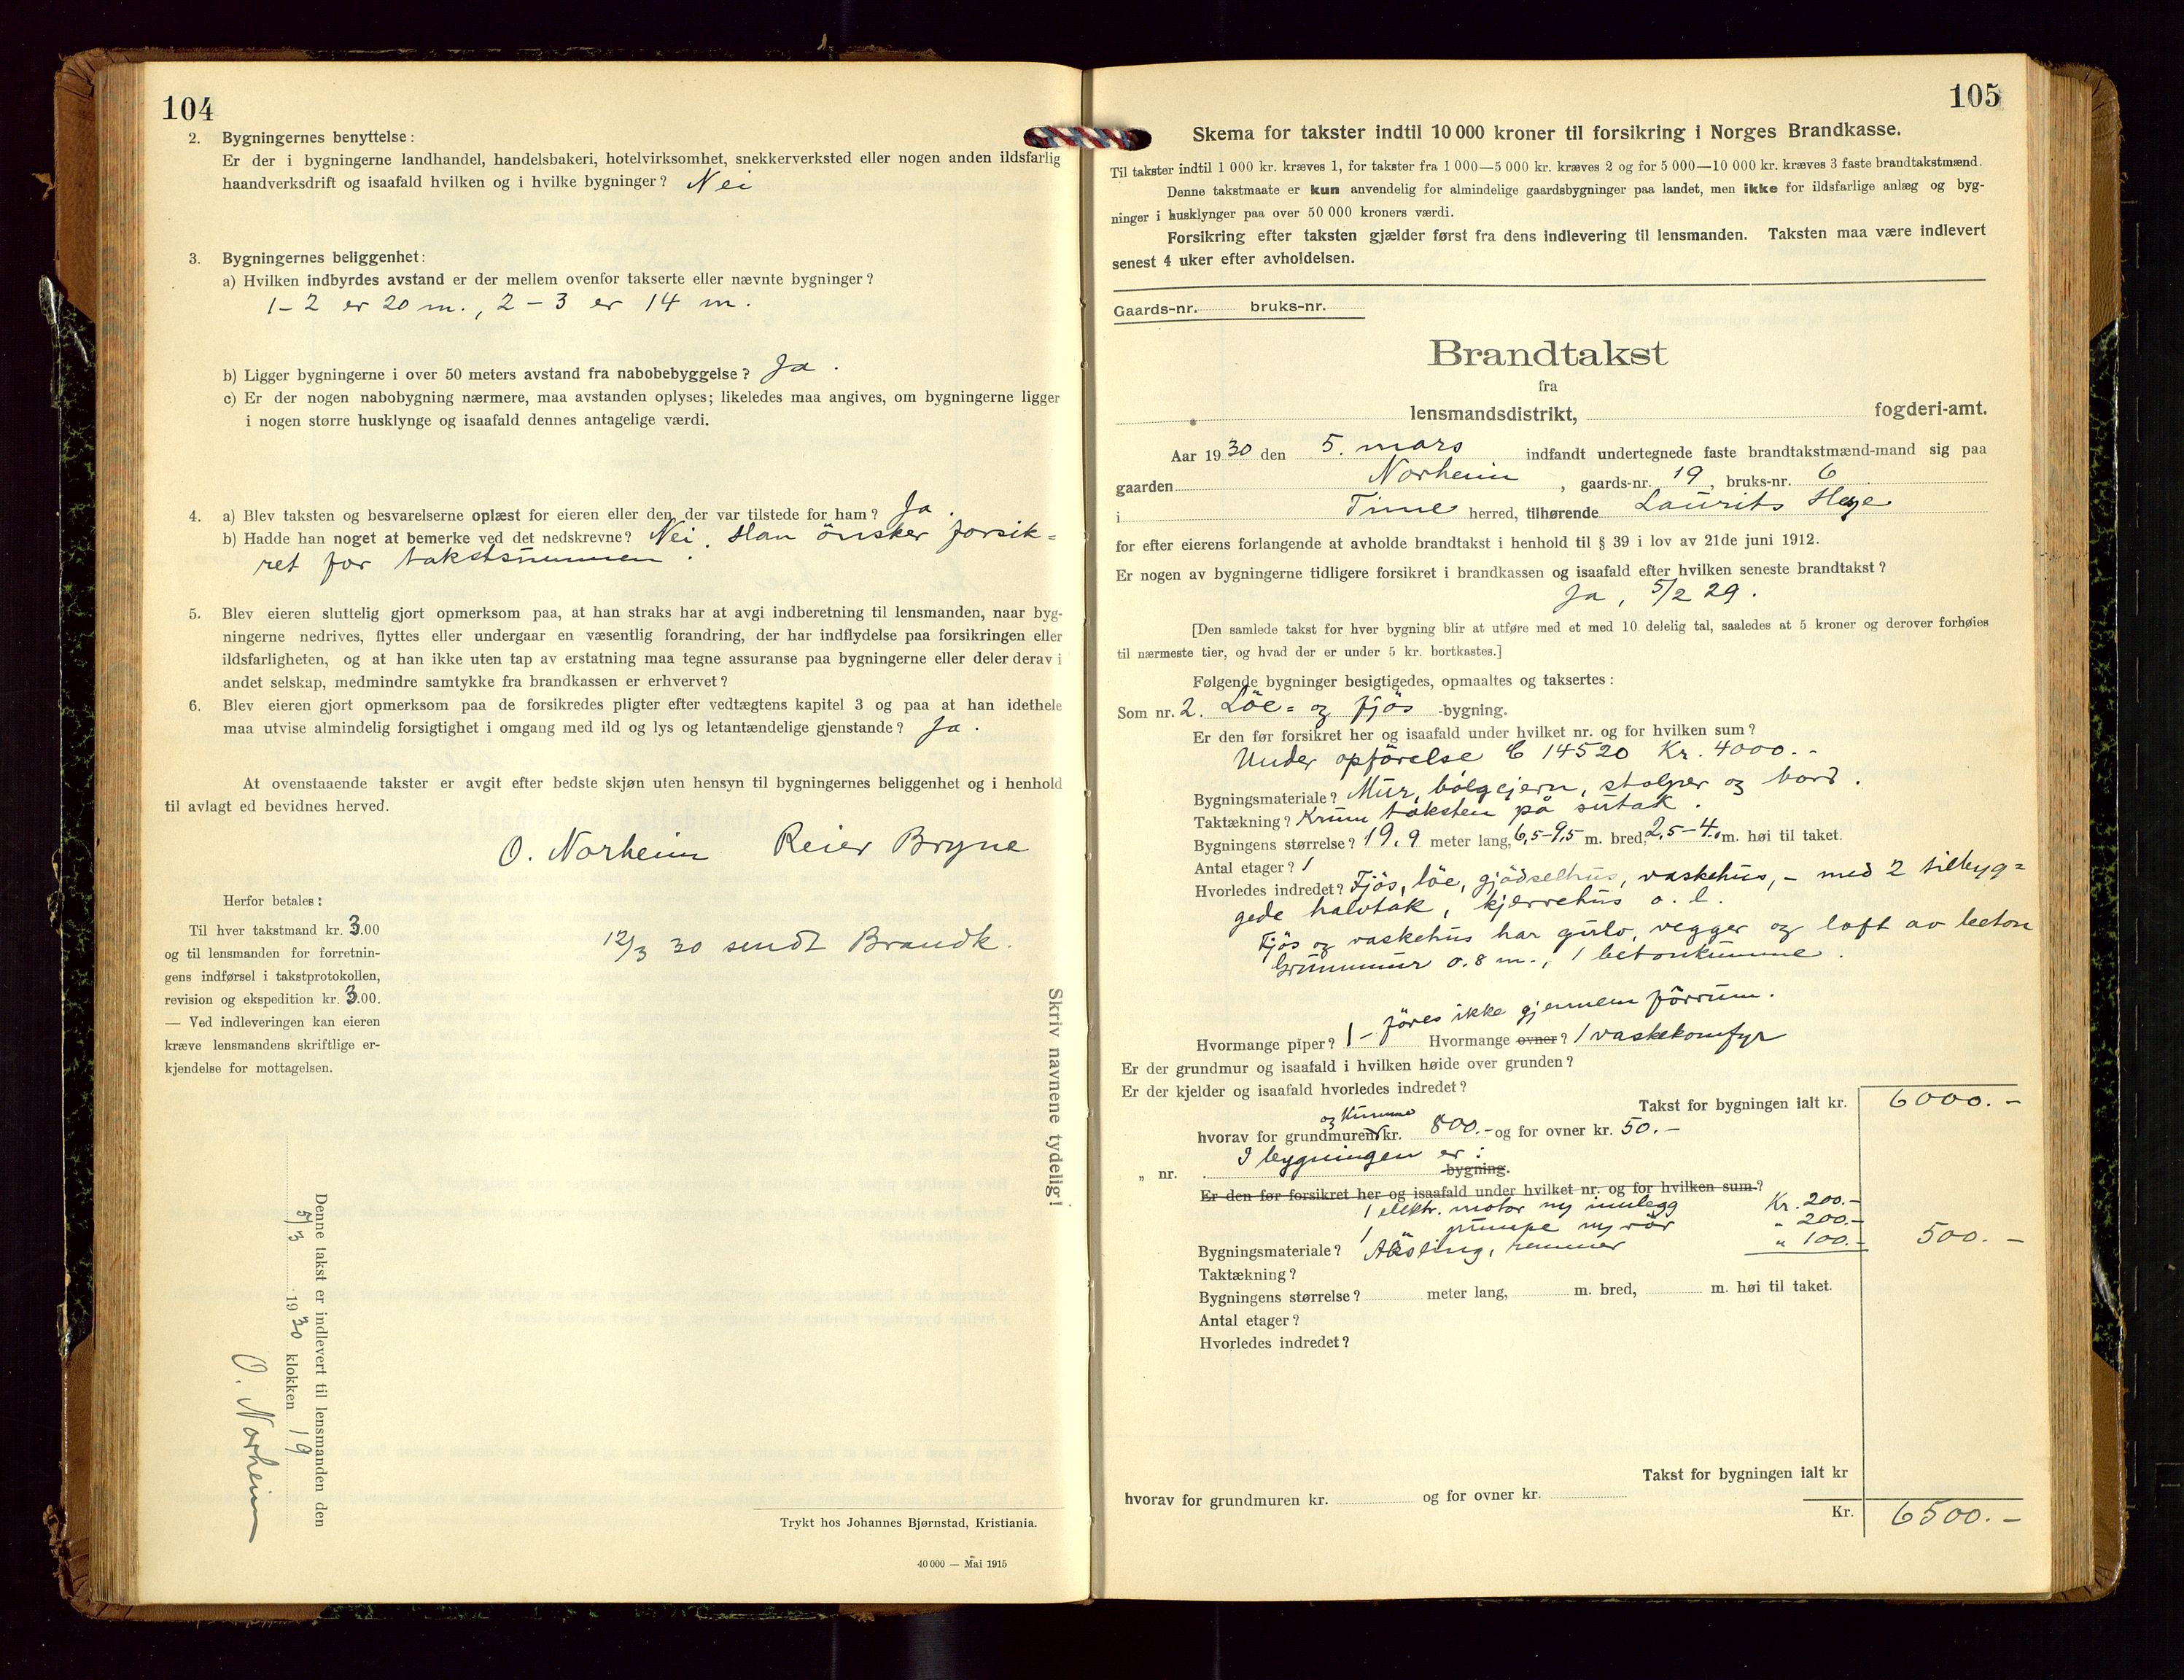 104
2. Bygningernes benyttelse:
Er der i bygningerne landhandel, handelsbakeri, hotelvirksomhet, snekkerverksted eller nogen anden ildsfarlig
haandverksdrift og isaafald hvilken og i hvilke bygninger? Nei
3. Bygningernes beliggenhet:
a) Hvilken indbyrdes avstand er der mellem ovenfor takserte eller nævnte bygninger?
1-2 er 20 m., 2-3 er 14 m.
b) Ligger bygningerne i over 50 meters avstand fra nabobebyggelse? Ja.
c) Er der nogen nabobygning nærmere, maa avstanden oplyses; likeledes maa angives, om bygningerne ligger
i nogen større husklynge og isaafald dennes antagelige værdi.
4. a) Blev taksten og besvarelserne oplæst for eieren eller den der var tilstede for ham? Ja.
b) Hadde han noget at bemerke ved det nedskrevne? Nei. Han önsker forsik=
ret for takstsummen.
5. Blev eieren sluttelig gjort opmerksom paa, at han straks har at avgi indberetning til lensmanden, naar byg-
ningerne nedrives, flyttes eller undergaar en væsentlig forandring, der har indflydelse paa forsikringen eller
ildsfarligheten, og at han ikke uten tap av erstatning maa tegne assuranse paa bygningerne eller deler derav i
andet selskap, medmindre samtykke fra brandkassen er erhvervet?
6. Blev eieren gjort opmerksom paa de forsikredes pligter efter vedtægtens kapitel 3 og paa at han idethele
maa utvise almindelig forsigtighet i omgang med ild og lys og letantændelige gjenstande? Ja.
At ovenstaaende takster er avgit efter bedste skjøn uten hensyn til bygningernes beliggenhet og i henhold
til avlagt ed bevidnes herved.
O. Norheim Reier Bryne
Herfor betales:
Til hver takstmand kr. 3.00
og til lensmanden for forretnin-
gens indførsel i takstprotokollen,
revision og ekspedition kr. 3.00.
— Ved indleveringen kan eieren
kræve lensmandens skriftlige er-
kjendelse for mottagelsen.
12/3 30 sendt Brandk.
Skriv navnene tydelig!
Denne takst er indlevert til lensmanden den
5/3 1930 klokken 19
O. Norheim
Trykt hos Johannes Bjørnstad, Kristiania.
40 000 — Mai 1915
105
Skema for takster indtil 10 000 kroner til forsikring i Norges Brandkasse.
Til takster indtil 1 000 kr. kræves 1, for takster fra 1 000—5 000 kr. kræves 2 og for 5 000—10 000 kr. kræves 3 faste brandtakstmænd.
Denne takstmaate er kun anvendelig for almindelige gaardsbygninger paa landet, men ikke for ildsfarlige anlæg og byg-
ninger i husklynger paa over 50 000 kroners værdi.
Forsikring efter taksten gjælder først fra dens indlevering til lensmanden. Taksten maa være indlevert
senest 4 uker efter avholdelsen.
Gaards-nr. bruks-nr.
Brandtakst
fra
lensmandsdistrikt, fogderi-amt.
Aar 1930 den 5. mars indfandt undertegnede faste brandtakstmænd-mand sig paa
gaarden Norheim, gaards-nr. 19, bruks-nr. 6
i Time herred, tilhørende Laurits
for efter eierens forlangende at avholde brandtakst i henhold til § 39 i lov av 21de juni 1912.
Er nogen av bygningerne tidligere forsikret i brandkassen og isaafald efter hvilken seneste brandtakst?
Ja, 5/2 29.
[Den samlede takst for hver bygning blir at utføre med et med 10 delelig tal, saaledes at 5 kroner og derover forhøies
til nærmeste tier, og hvad der er under 5 kr. bortkastes.]
Følgende bygninger besigtigedes, opmaaltes og taksertes:
Som nr. 2. Löe= og fjös -bygning.
Er den før forsikret her og isaafald under hvilket nr. og for hvilken sum?
Under opförelse C 14520 Kr. 4000.-
Bygningsmateriale? Mur, bölgejern, stolper og bord.
Taktækning? Krum taksten på sutak.
Bygningens størrelse? 19,9 meter lang, 6,5-9,5 m. bred, 2,5-4,0 m. høi til taket.
Antal etager? 1
Hvorledes indredet? Fjös, löe, gjödselhus, vaskehus, - med 2 tilbyg=
gede halvtak, kjærrehus o. l.
Fjös og vaskehus har gulv, vegger og loft av beton
Grunnmur 0.8 m., 1 betonkumme.
Hvormange piper? 1 - föres ikke gjennem fôrrum. Hvormange ovner? 1 vaskekomfyr
Er der grundmur og isaafald i hvilken høide over grunden?
Er der kjelder og isaafald hvorledes indredet?
Takst for bygningen ialt kr. 6000.-
og kumme
hvorav for grundmuren kr. 800.- og for ovner kr. 50.-
„ nr. I bygningen er: bygning.
Er den før forsikret her og isaafald under hvilket nr. og for hvilken sum?
1 elektr. motor ny innlegg Kr. 200.-
1 pumpe ny rör " 200.-
Bygningsmateriale? Aksling, remmer " 100.- 500.-
Taktækning?
Bygningens størrelse? meter lang, m. bred, m. høi til taket.
Antal etager?
Hvorledes indredet?
Takst for bygningen ialt kr
hvorav for grundmuren kr. og for ovner kr.
Kr. 6500.-